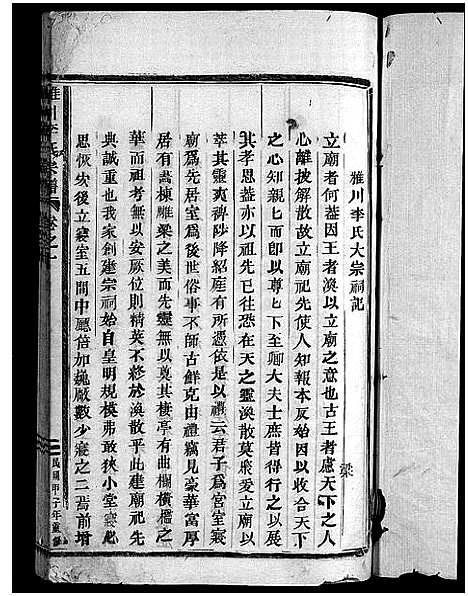 雅川李氏大宗祠記
梁
立廟者何蓋因王者渙以立廟之意也古王者慮天下之人
心離披解散故立廟祀先使人知報本反始因以收合天下
之心知親匕而即以尊匕下至卿大夫士庶皆得行之以展
其孝思蓋亦以祖先已往恐在天之靈渙散莫聚爰立廟以
萃其靈爽俾陟降紹庭有所憑依是以禮云君子為宮室宗
廟為先居室為後世俗事不師古鮮克由禮竊見豪華富厚
居有畵棟雕梁之美而先靈無以奠其棲亭有曲欄橫檻之
華而祖考無以安厥位則精英不終於渙散乎此建廟祀先
典誠重也我家創建宗祠始自皇明規模弗敢狹小堂寢必
思恢後立寢室五間中廳倍加巍殿數少寢之二焉前增
雅川李氏宗譜 卷之
民國甲子年重修